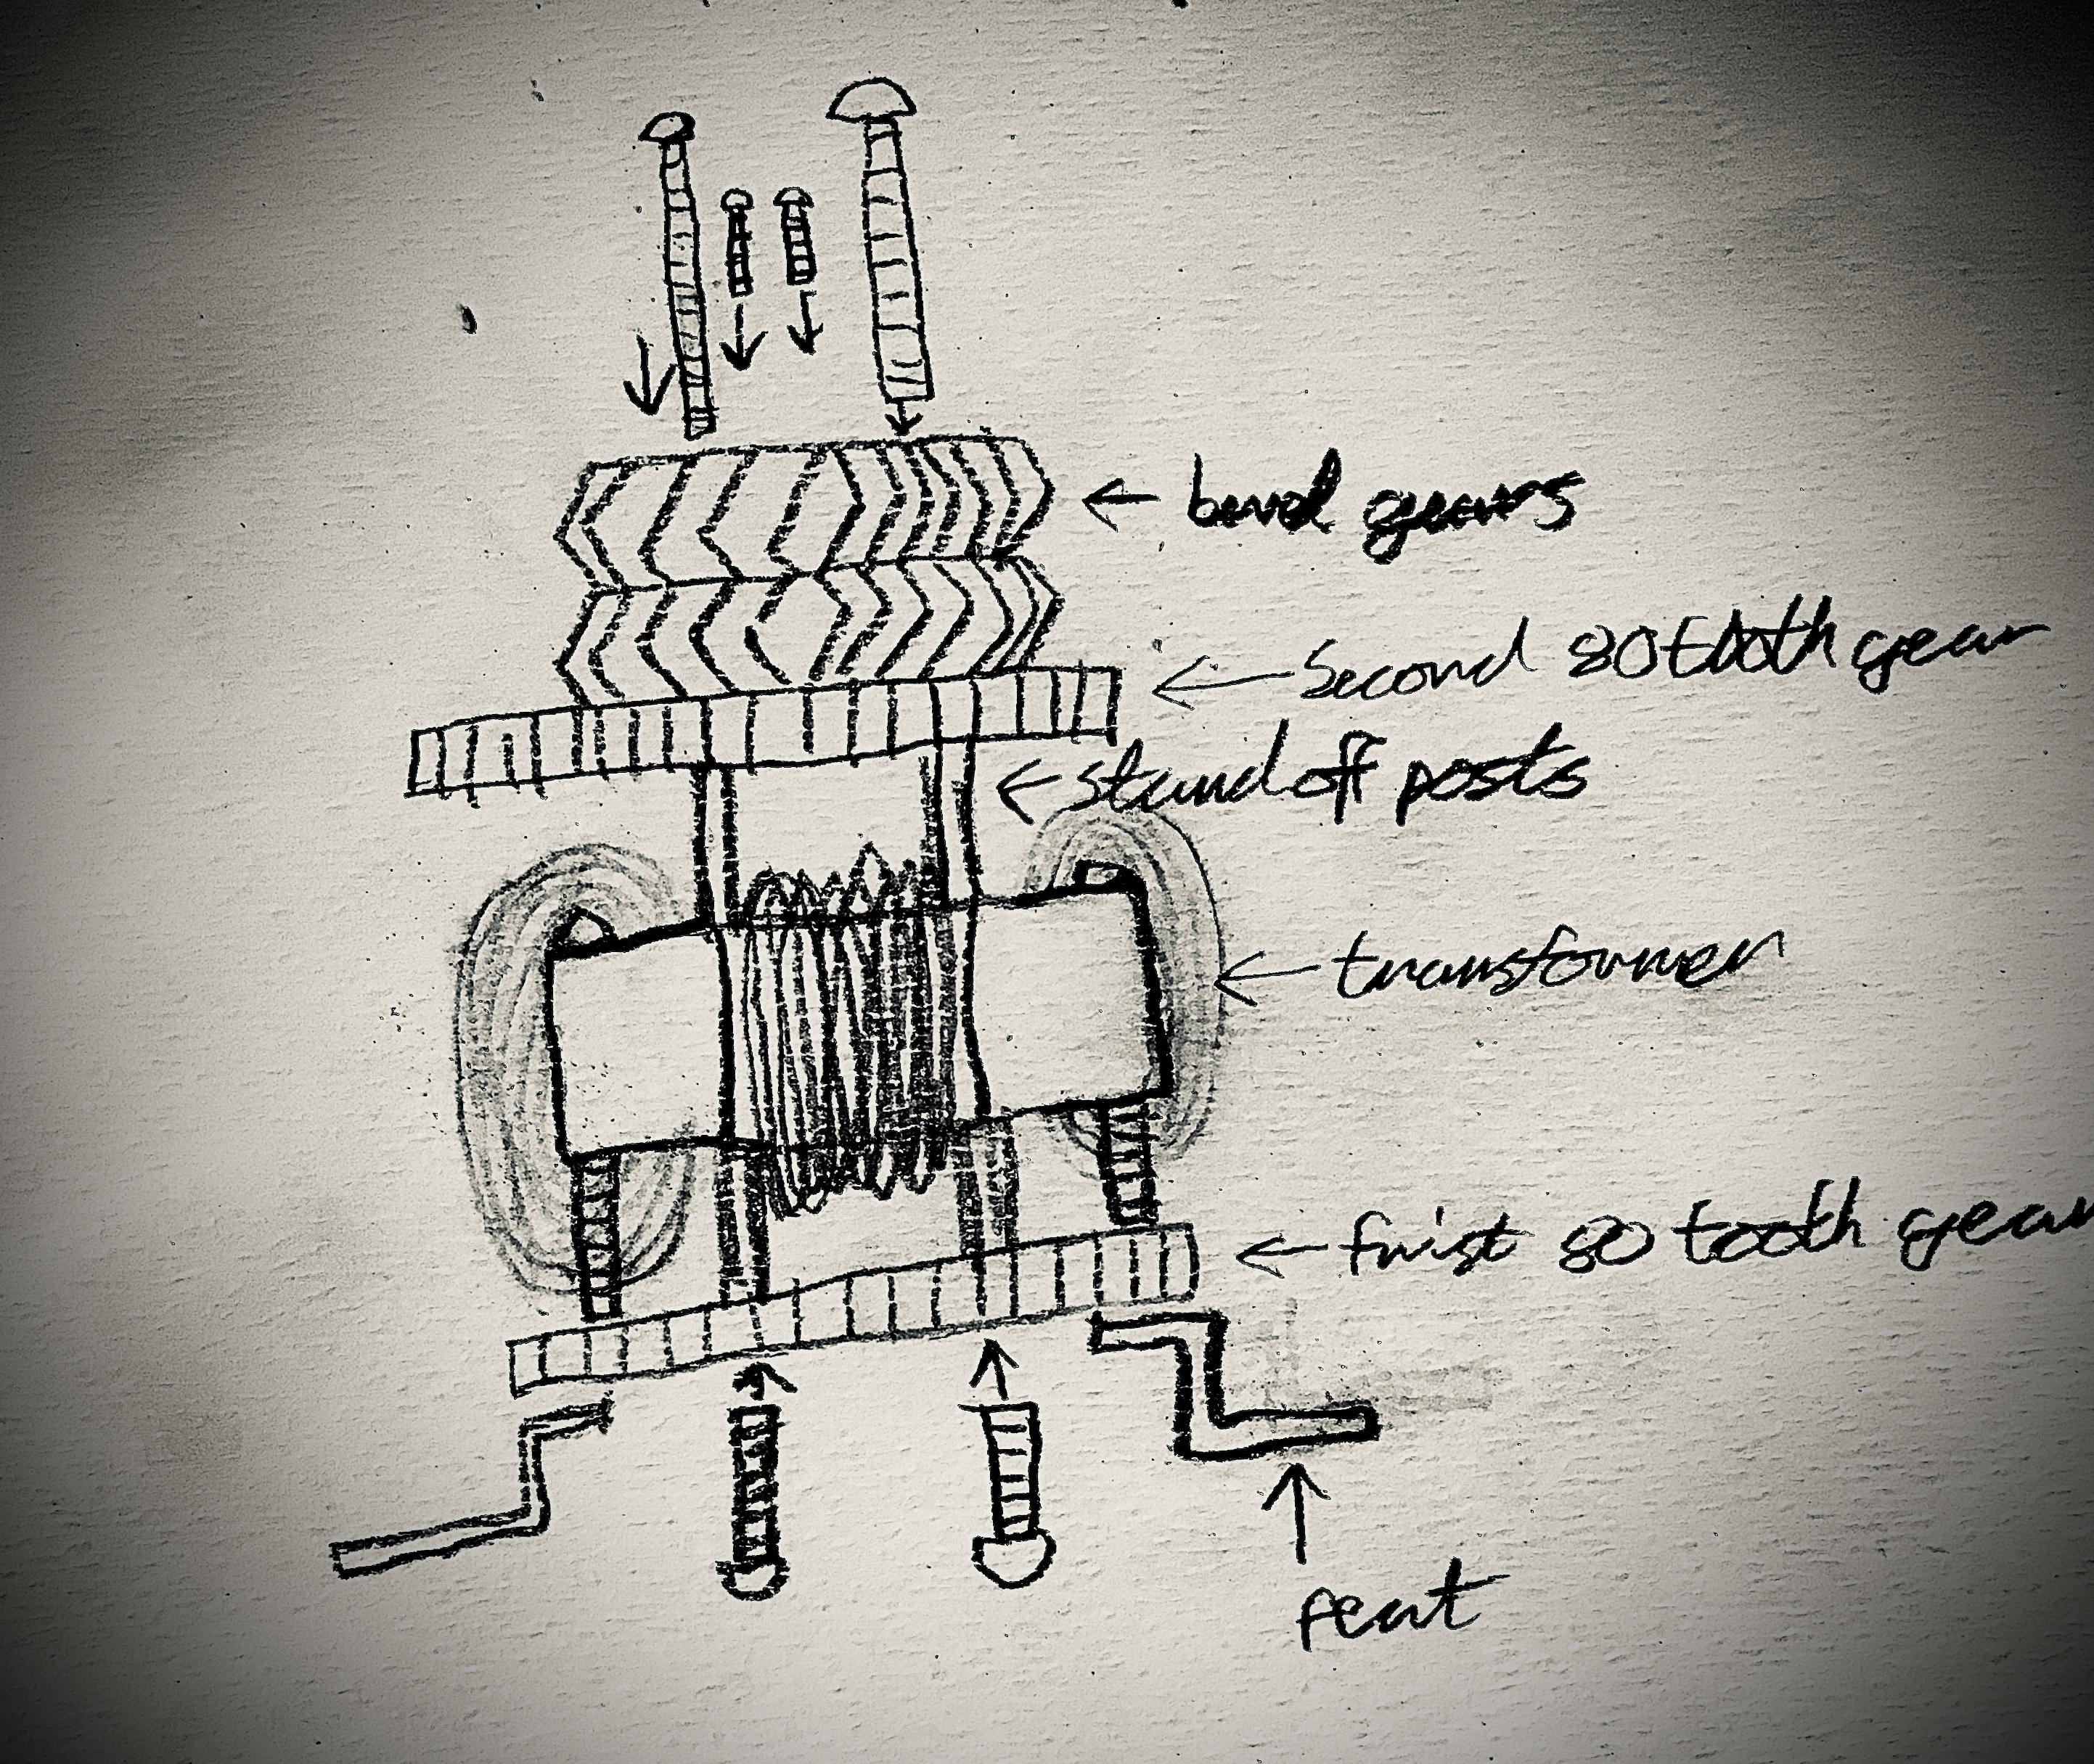 bevel gears
Second 80 tooth gear
standoff posts
transformer
fwist 80 tooth gear
feat